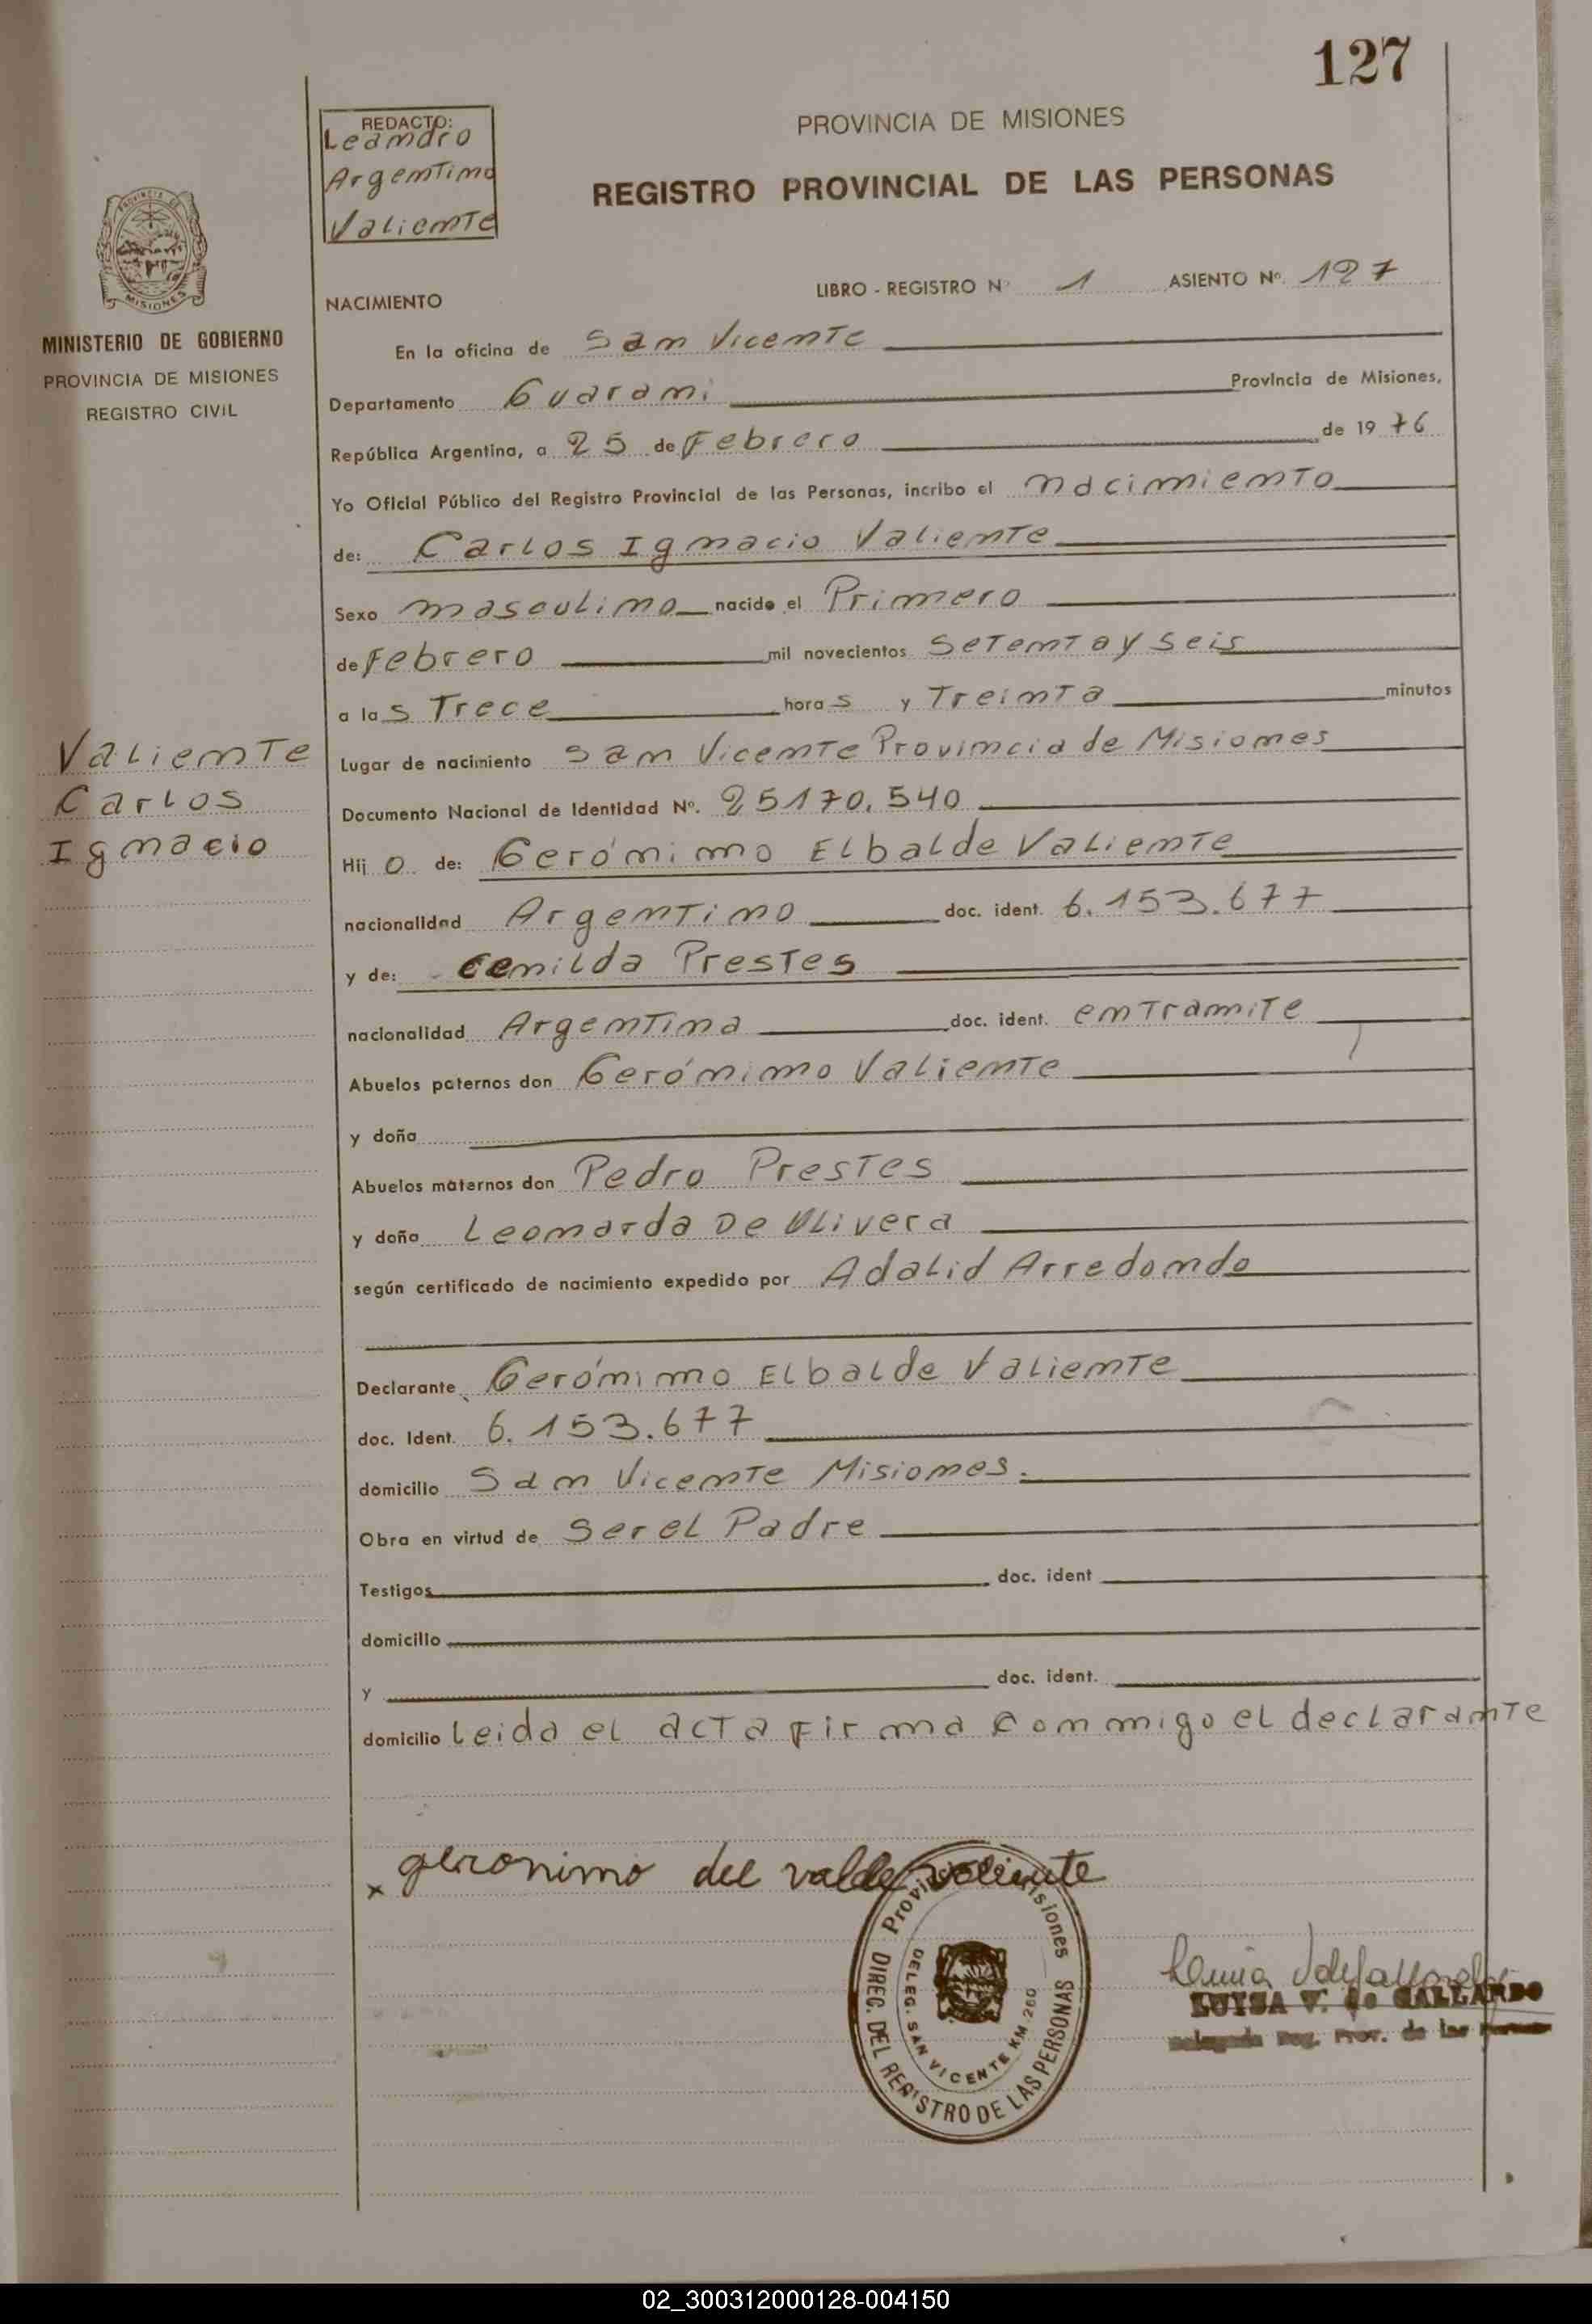 127
REDACTO:
Leandro
Argentino
Valiente
PROVINCIA DE MISIONES
REGISTRO PROVINCIAL DE LAS PERSONAS
PROVINCIA DE
MISIONES
MINISTERIO DE GOBIERNO
PROVINCIA DE MISIONES
REGISTRO CIVIL
LIBRO - REGISTRO Nº 1 ASIENTO Nº. 127
NACIMIENTO
En la oficina de San Vicente
Departamento Guarani Provincia de Misiones,
República Argentina, a 25 de Febrero de 1976
Yo Oficial Público del Registro Provincial de las Personas, incribo el nacimiento
de: Carlos Ignacio Valiente
Sexo masculino nacido el Primero
de Febrero mil novecientos setenta y seis
a las Trece horas y Treinta minutos
Lugar de nacimiento San Vicente Provincia de Misiones
Documento Nacional de Identidad Nº. 25170.540
Valiente
Carlos
Ignacio
Hijo de: Gerónimo Elbalde Valiente
nacionalidad Argentino doc. ident. 6.153.677
y de: Cenilda Prestes
nacionalidad Argentina doc. ident. en Tramite
Abuelos paternos don Gerónimo Valiente
y doña
Abuelos maternos don Pedro Prestes
y doña Leonarda De Olivera
según certificado de nacimiento expedido por Adalid Arredondo
Declarante Gerónimo Elbalde Valiente
doc. Ident. 6.153.677
domicilio San Vicente Misiones.
Obra en virtud de ser el Padre
Testigos doc. ident
domicilio
y doc. ident.
domicilio leida el acta firma conmigo el declarante
x geronimo del valde valiente
Provincia de Misiones
DIREC. DEL REGISTRO DE LAS PERSONAS
DELEG. SAN VICENTE KM 260
LUISA V. de GALLARDO
Delegada Reg. Prov. de las Personas
02_300312000128-004150